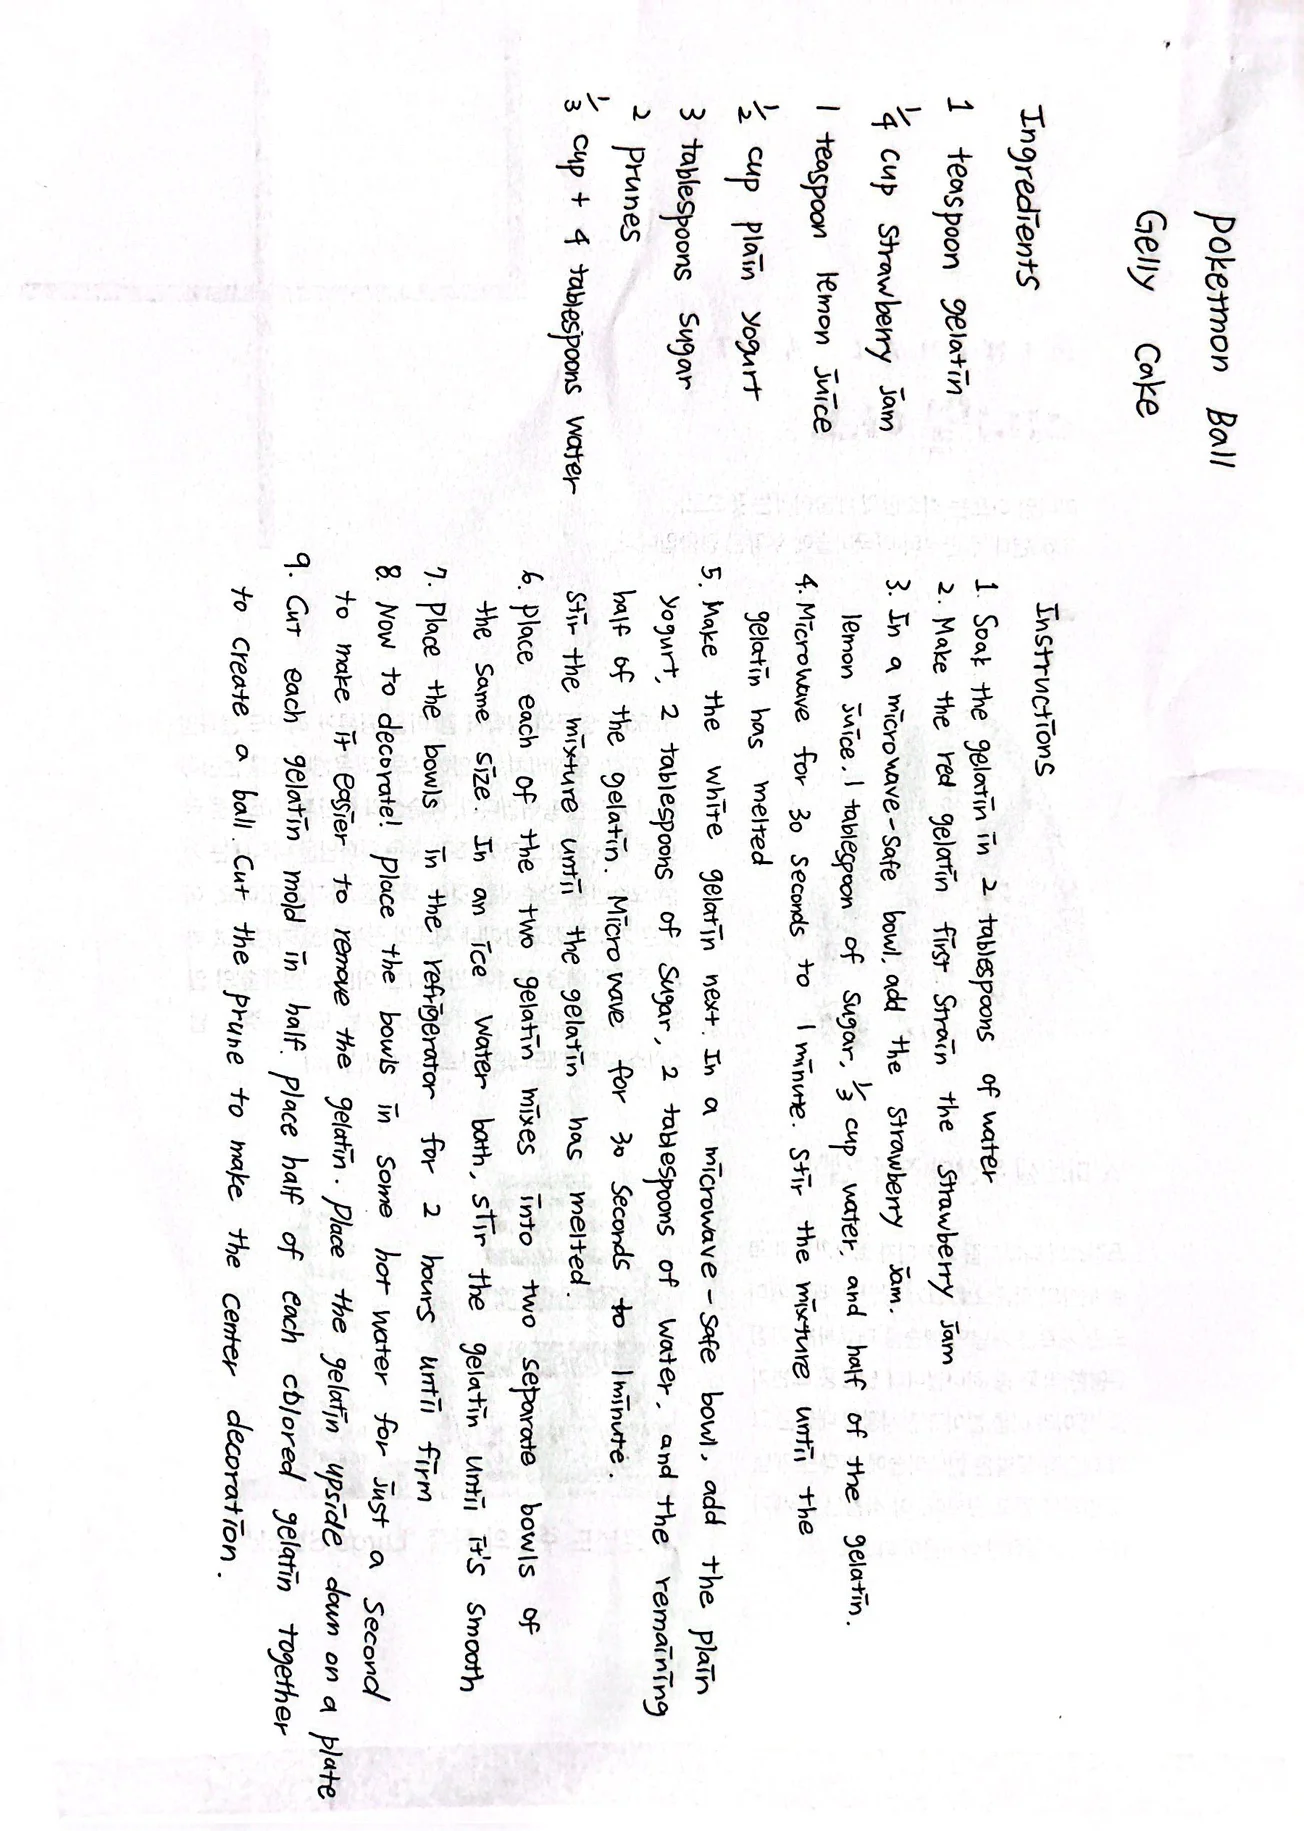 Poketmon Ball
Gelly Cake
Ingredients
1 teaspoon gelatin
1/4 cup strawberry jam
1 teaspoon lemon juice
1/2 cup plain yogurt
3 tablespoons sugar
2 prunes
1/3 cup + 4 tablespoons water
Instructions
1 Soak the gelatin in 2 tablespoons of water
2. Make the red gelatin first. Strain the strawberry jam
3. In a microwave-safe bowl, add the strawberry jam.
lemon juice. 1 tablespoon of sugar, 1/3 cup water, and half of the gelatin.
4. Microwave for 30 seconds to 1 minute. Stir the mixture until the
gelatin has melted
5. Make the white gelatin next. In a microwave-safe bowl, add the plain
yogurt, 2 tablespoons of sugar, 2 tablespoons of water, and the remaining
half of the gelatin. Microwave for 30 seconds to 1 minute.
Stir the mixture until the gelatin has melted.
6. Place each of the two gelatin mixes into two separate bowls of
the same size. In an ice water bath, stir the gelatin until it's smooth
7. Place the bowls in the refrigerator for 2 hours until firm
8. Now to decorate! Place the bowls in some hot water for just a second
to make it easier to remove the gelatin. Place the gelatin upside down on a plate
9. Cut each gelatin mold in half. Place half of each colored gelatin together
to create a ball. Cut the prune to make the center decoration.